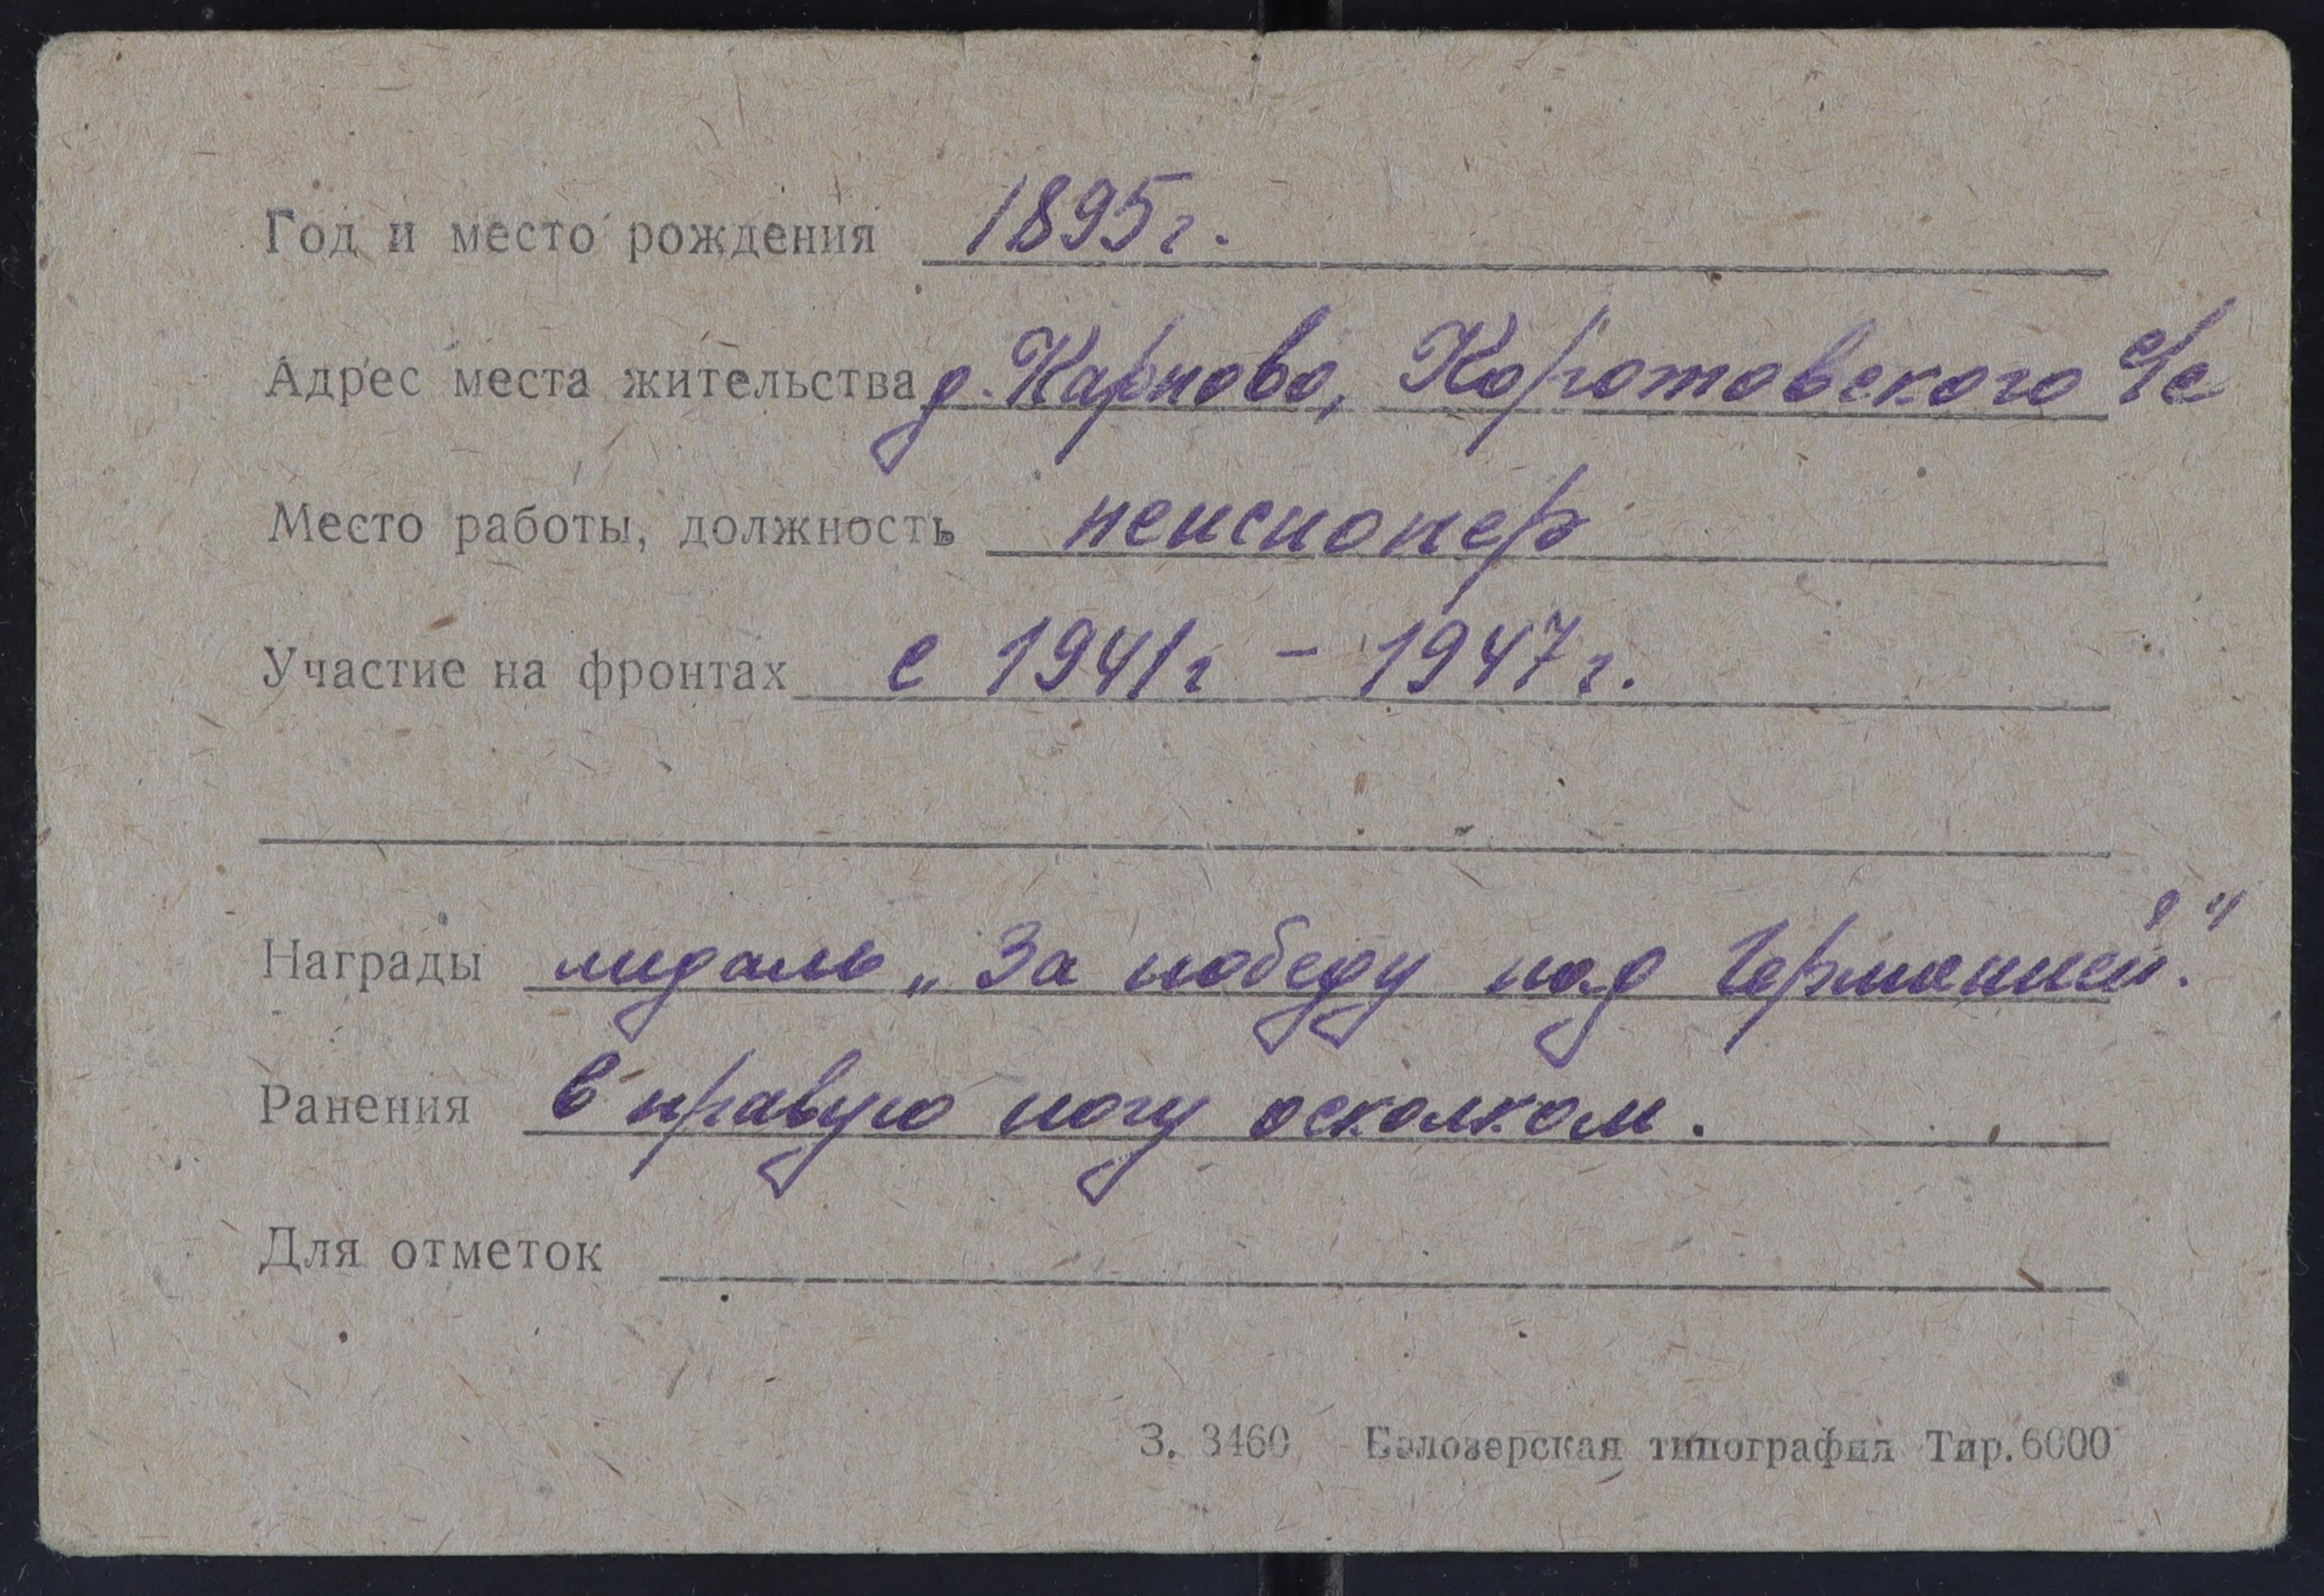 Год и место рождения 1895 г.
Адрес места жительства д. Карпово, Коротовского с/с
Место работы, должность пенсионер
Участие на фронтах с 1941 г - 1947 г.
Награды медаль „За победу над Германией."
Ранения в правую ногу осколком.
Для отметок
З. 3460 Белозерская типография Тир. 6000